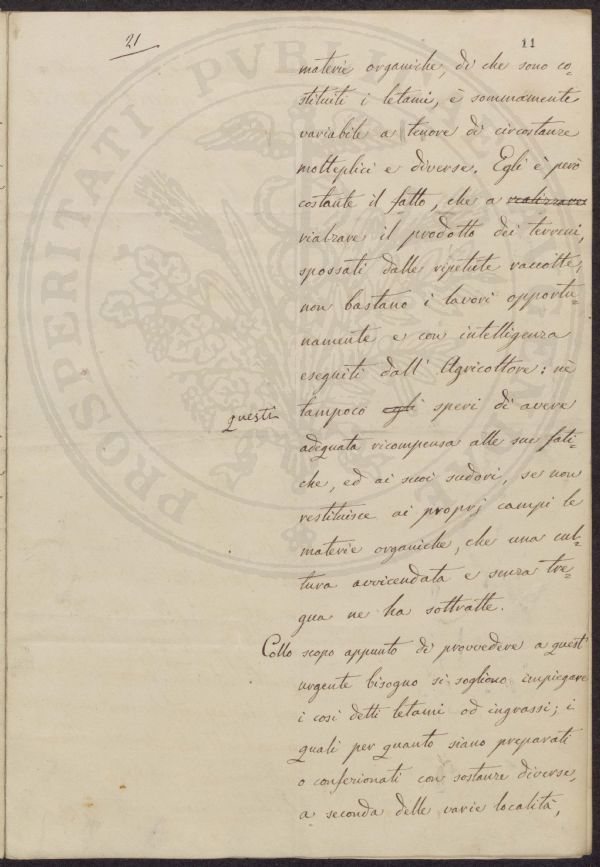 21
11
materie organiche, di che sono co=
stituiti i letami, è sommamente
variabile a tenore di circostanze
molteplici e diverse. Egli è però
costante il fatto, che a realizzare
rialzare il prodotto dei terreni,
spossati dalle ripetute raccolte,
non bastano i lavori opportu=
namente e con intelligenza
eseguiti dall' Agricoltore: nè
questi
tampoco egli speri di avere
adeguata ricompensa alle sue fati=
che, ed ai suoi sudori, se non
restituisce ai proprj campi le
materie organiche, che una cul=
tura avvicendata e senza tre=
gua ne ha sottratte.
Collo scopo appunto di provvedere a quest'
urgente bisogno si sogliono impiegare
i così detti letami od ingrassi; i
quali per quanto siano preparati
o confezionati con sostanze diverse,
a seconda delle varie località,
PROSPERITATI PVBLICAE